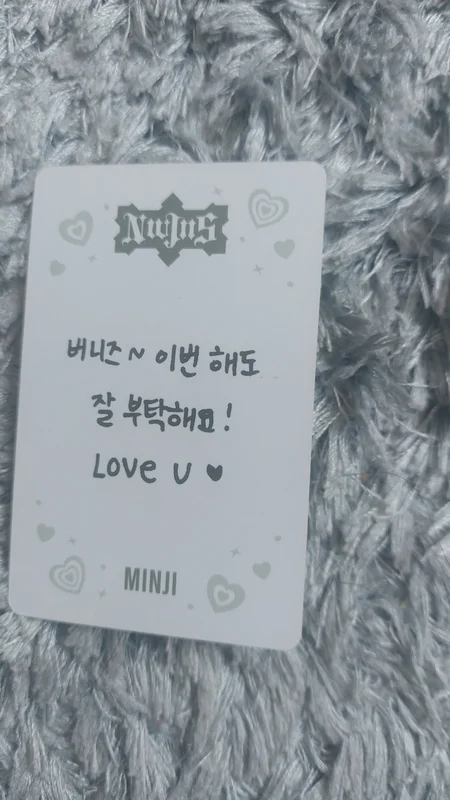 NewJeans
버니즈~ 이번 해도
잘 부탁해요!
Love u ♥
MINJI